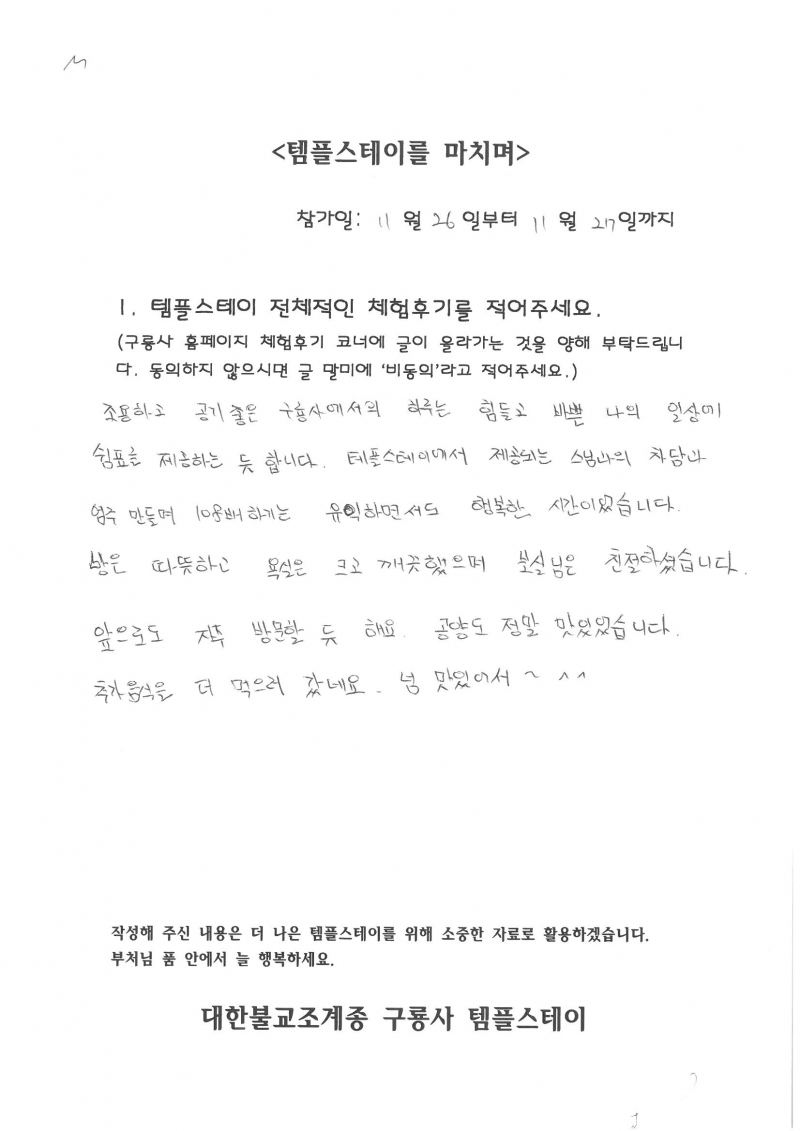 <템플스테이를 마치며>
참가일: 11 월 26 일부터 11 월 27 일까지
1. 템플스테이 전체적인 체험후기를 적어주세요.
(구룡사 홈페이지 체험후기 코너에 글이 올라가는 것을 양해 부탁드립니
다. 동의하지 않으시면 글 말미에 '비동의'라고 적어주세요.)
조용하고 공기 좋은 구룡사에서의 하루는 힘들고 바쁜 나의 일상에
쉼표를 제공하는 듯 합니다. 템플스테이에서 제공되는 스님과의 차담과
염주 만들며 108배하기는 유익하면서도 행복한 시간이었습니다.
방은 따뜻하고 욕실은 크고 깨끗했으며 보살님은 친절하셨습니다.
앞으로도 자주 방문할 듯 해요. 공양도 정말 맛있었습니다.
추가음식을 더 먹으러 갔네요. 넘 맛있어서 ~ ^^
작성해 주신 내용은 더 나은 템플스테이를 위해 소중한 자료로 활용하겠습니다.
부처님 품 안에서 늘 행복하세요.
대한불교조계종 구룡사 템플스테이